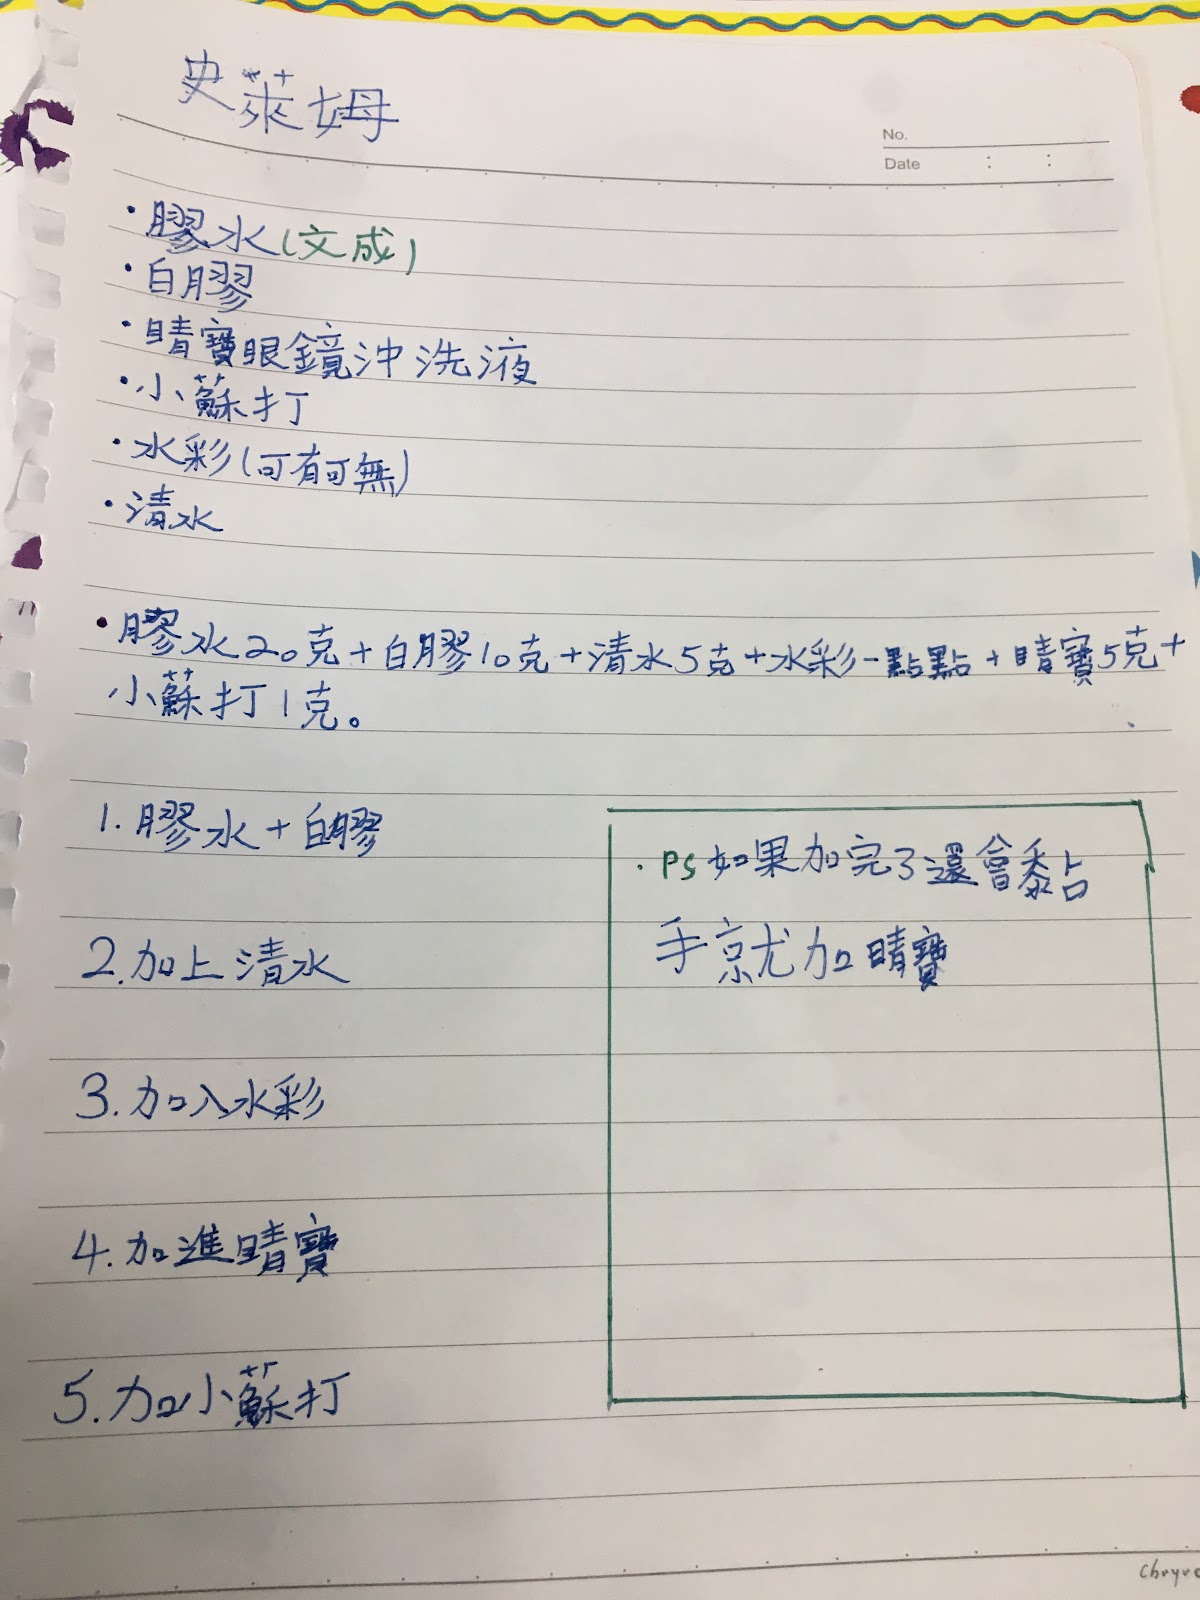 史萊姆
No.
Date : :
·膠水(文成)
·白膠
·睛寶眼鏡沖洗液
·小蘇打
·水彩(可有可無)
·清水
·膠水20克+白膠10克+清水5克+水彩一點點+睛寶5克+
小蘇打1克。
1.膠水+白膠
2.加上清水
3.加入水彩
4.加進睛寶
5.加小蘇打
·PS如果加完了還會黏
手就加睛寶